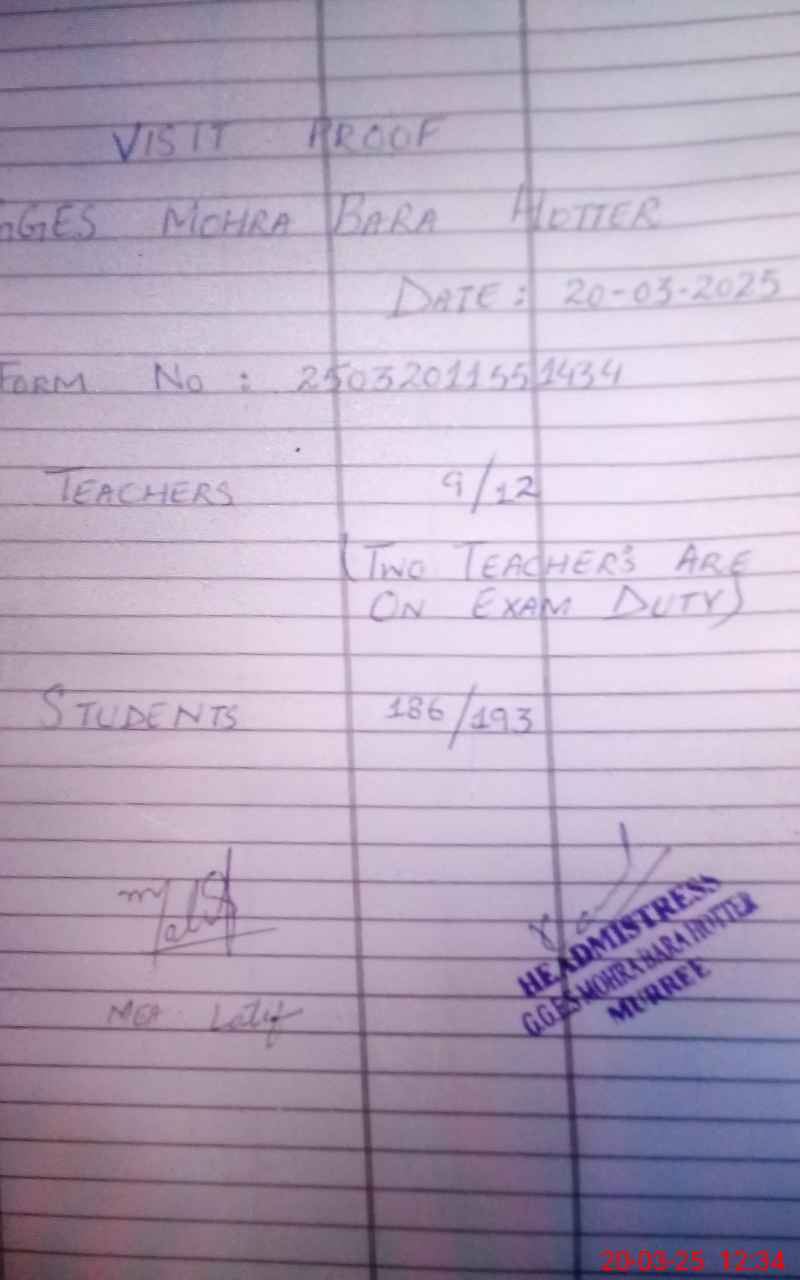 VISIT PROOF
GGES MOHRA BARA HOTTER
DATE: 20-03-2025
FORM No: 25032011551434
TEACHERS 9/12
(TWO TEACHER'S ARE
ON EXAM DUTY)
STUDENTS 186/193
MEA Latif
HEADMISTRESS
G.G.ES MOHRA BARA HOTTER
MURREE
20-03-25 12:34